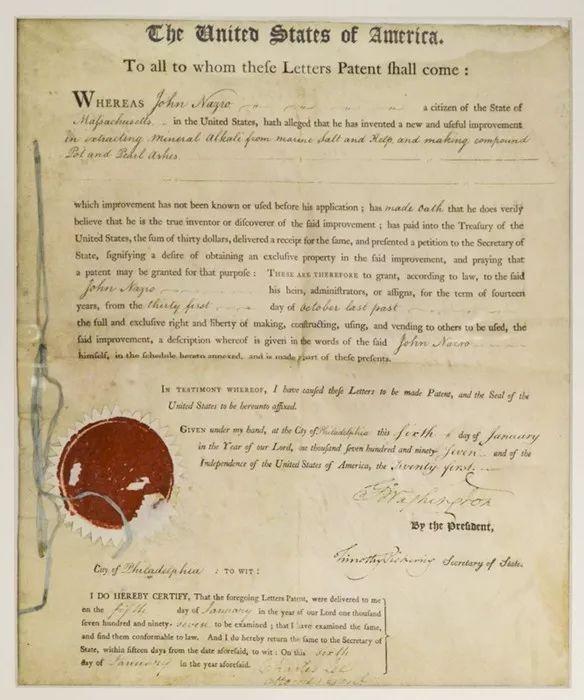 The United States of America.
To all to whom theſe Letters Patent ſhall come :
WHEREAS John Nazro " " " " a citizen of the State of
Maſsachusetts — in the United States, hath alleged that he has invented a new and uſeful improvement
in extracting Mineral Alkali from marine Salt and Kelp and making compound
Pot and Pearl Ashes.
which improvement has not been known or uſed before his application ; has made oath that he does verily
believe that he is the true inventor or diſcoverer of the ſaid improvement ; has paid into the Treaſury of the
United States, the ſum of thirty dollars, delivered a receipt for the ſame, and preſented a petition to the Secretary of
State, ſignifying a deſire of obtaining an excluſive property in the ſaid improvement, and praying that
a patent may be granted for that purpoſe : THESE ARE THEREFORE to grant, according to law, to the ſaid
John Nazro — his heirs, adminiſtrators, or aſſigns, for the term of fourteen
years, from the thirty first — day of October last past
the full and excluſive right and liberty of making, conſtructing, uſing, and vending to others to be uſed, the
ſaid improvement, a deſcription whereof is given in the words of the ſaid John Nazro
himſelf, in the ſchedule hereto annexed, and is made part of theſe preſents.
IN TESTIMONY WHEREOF, I have cauſed theſe Letters to be made Patent, and the Seal of the
United States to be hereunto affixed.
GIVEN under my hand, at the City of Philadelphia this ſixth day of January
in the Year of our Lord, one thouſand ſeven hundred and ninety ſeven — and of the
Independence of the United States of America, the Twenty first.
G Waſhington
By the Preſident,
Timothy Pickering Secretary of State.
City of Philadelphia : TO WIT :
I DO HEREBY CERTIFY, That the foregoing Letters Patent, were delivered to me
on the fifth day of January in the year of our Lord one thouſand
ſeven hundred and ninety-ſeven to be examined ; that I have examined the ſame,
and find them conformable to law. And I do hereby return the ſame to the Secretary of
State, within fifteen days from the date aforeſaid, to wit : On this ſixth
day of January in the year aforeſaid. Charles Lee